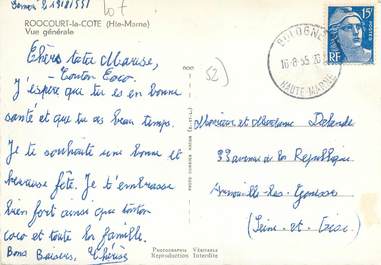 ROOCOURT-la-COTE (Hte-Marne)
Vue générale
Chère tatie Maruse,
tonton Coco.
J'espère que tu es en bonne
santé et que tu as beau temps.
Je te souhaite une bonne et
heureuse fête. Je t'embrasse
bien fort ainsi que tonton
coco et toute la famille.
Bons Baisers, Thérèse
52
BOLOGNE
16-8-55
HAUTE-MARNE
15F
POSTES
RF
Monsieur et Madame
39 avenue de la République
Arnouville-les-Gonesse
(Seine-et-Oise)
PHOTOGRAPHIE VÉRITABLE
Reproduction Interdite